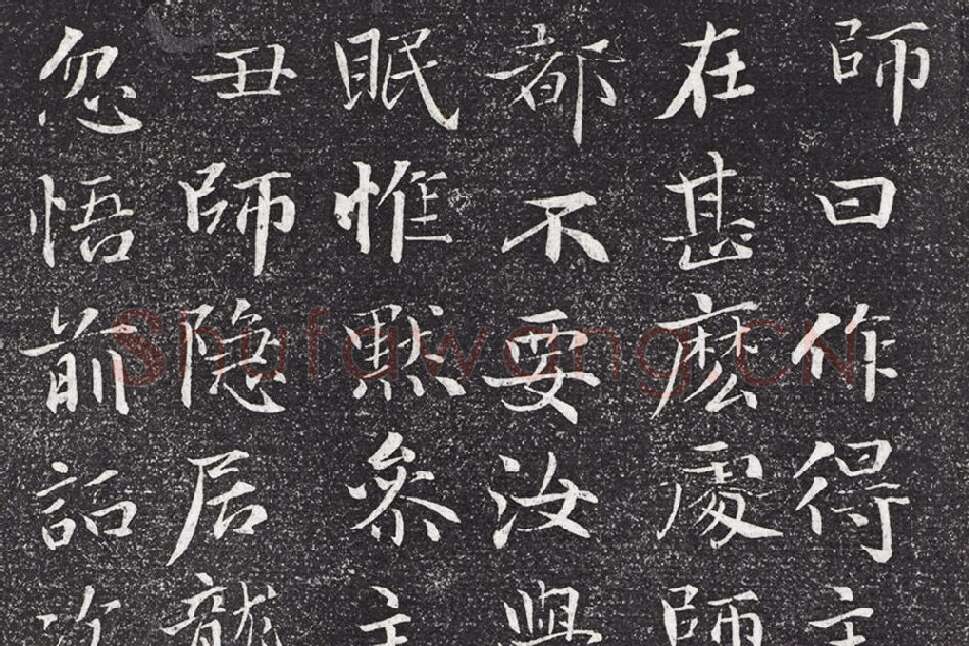 師曰作得主
在甚麼處師
都不要汝
眠惟黙參主
丑師隐居龍
忽悟前
Shufawang.CN